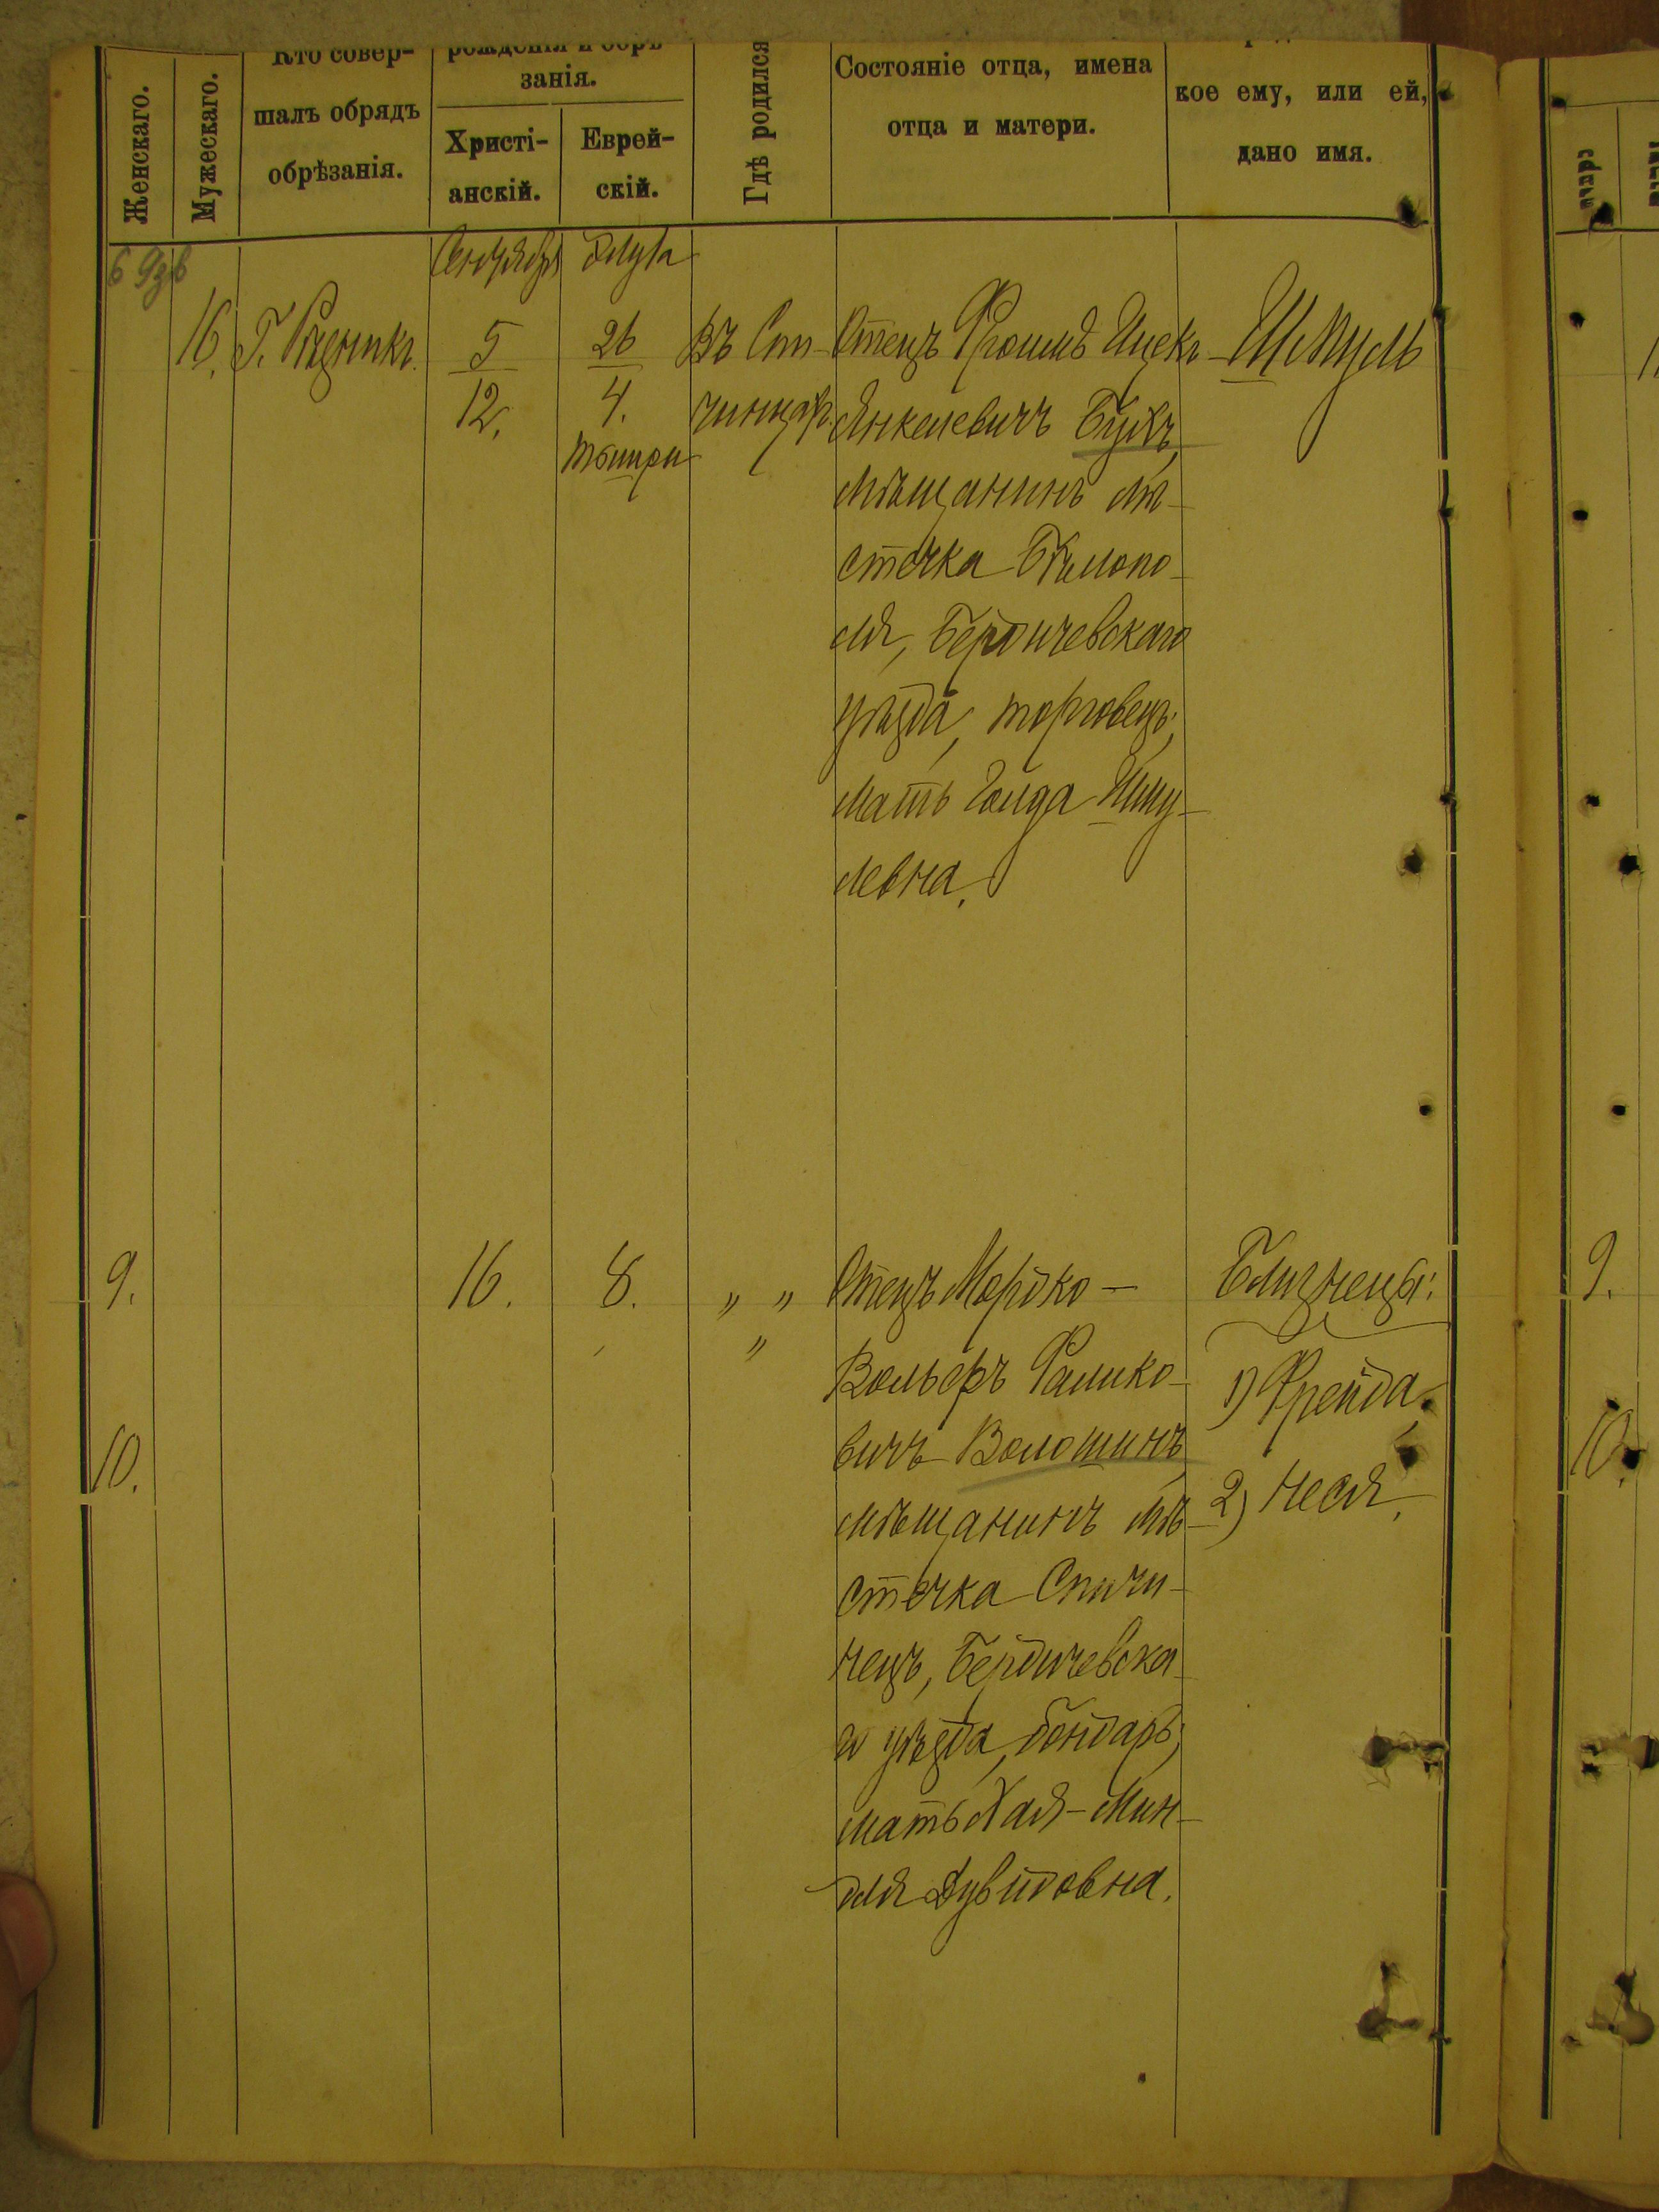 Женскаго.
Мужескаго.
Кто совер-
шалъ обрядъ
обрѣзанія.
рожденія и обрѣ-
занія.
Христі-
анскій.
Еврей-
скій.
Гдѣ родился
Состояніе отца, имена
отца и матери.
кое ему, или ей,
дано имя.
Сентября
Элула
16.
Г.
5
12.
26
4.
тышри
Въ Спи-
чинцахъ.
Отецъ Фроимъ Ицекъ
Янкелевичъ Букъ,
мѣщанинъ мѣ-
стечка Бѣлопо-
ля, Бердичевскаго
уѣзда, торговецъ;
мать Голда Шму-
левна.
Шмуль
9.
10.
16.
8.
" "
"
Отецъ Мордко-
Вольфъ Фалико-
вичъ Волошинъ,
мѣщанинъ мѣ-
стечка Спичи-
нецъ, Бердичевска-
го уѣзда, бондарь;
мать Хая-Мин-
для Дувидовна.
Близнецы:
1) Фрейда,
2) Неся.
9.
10.